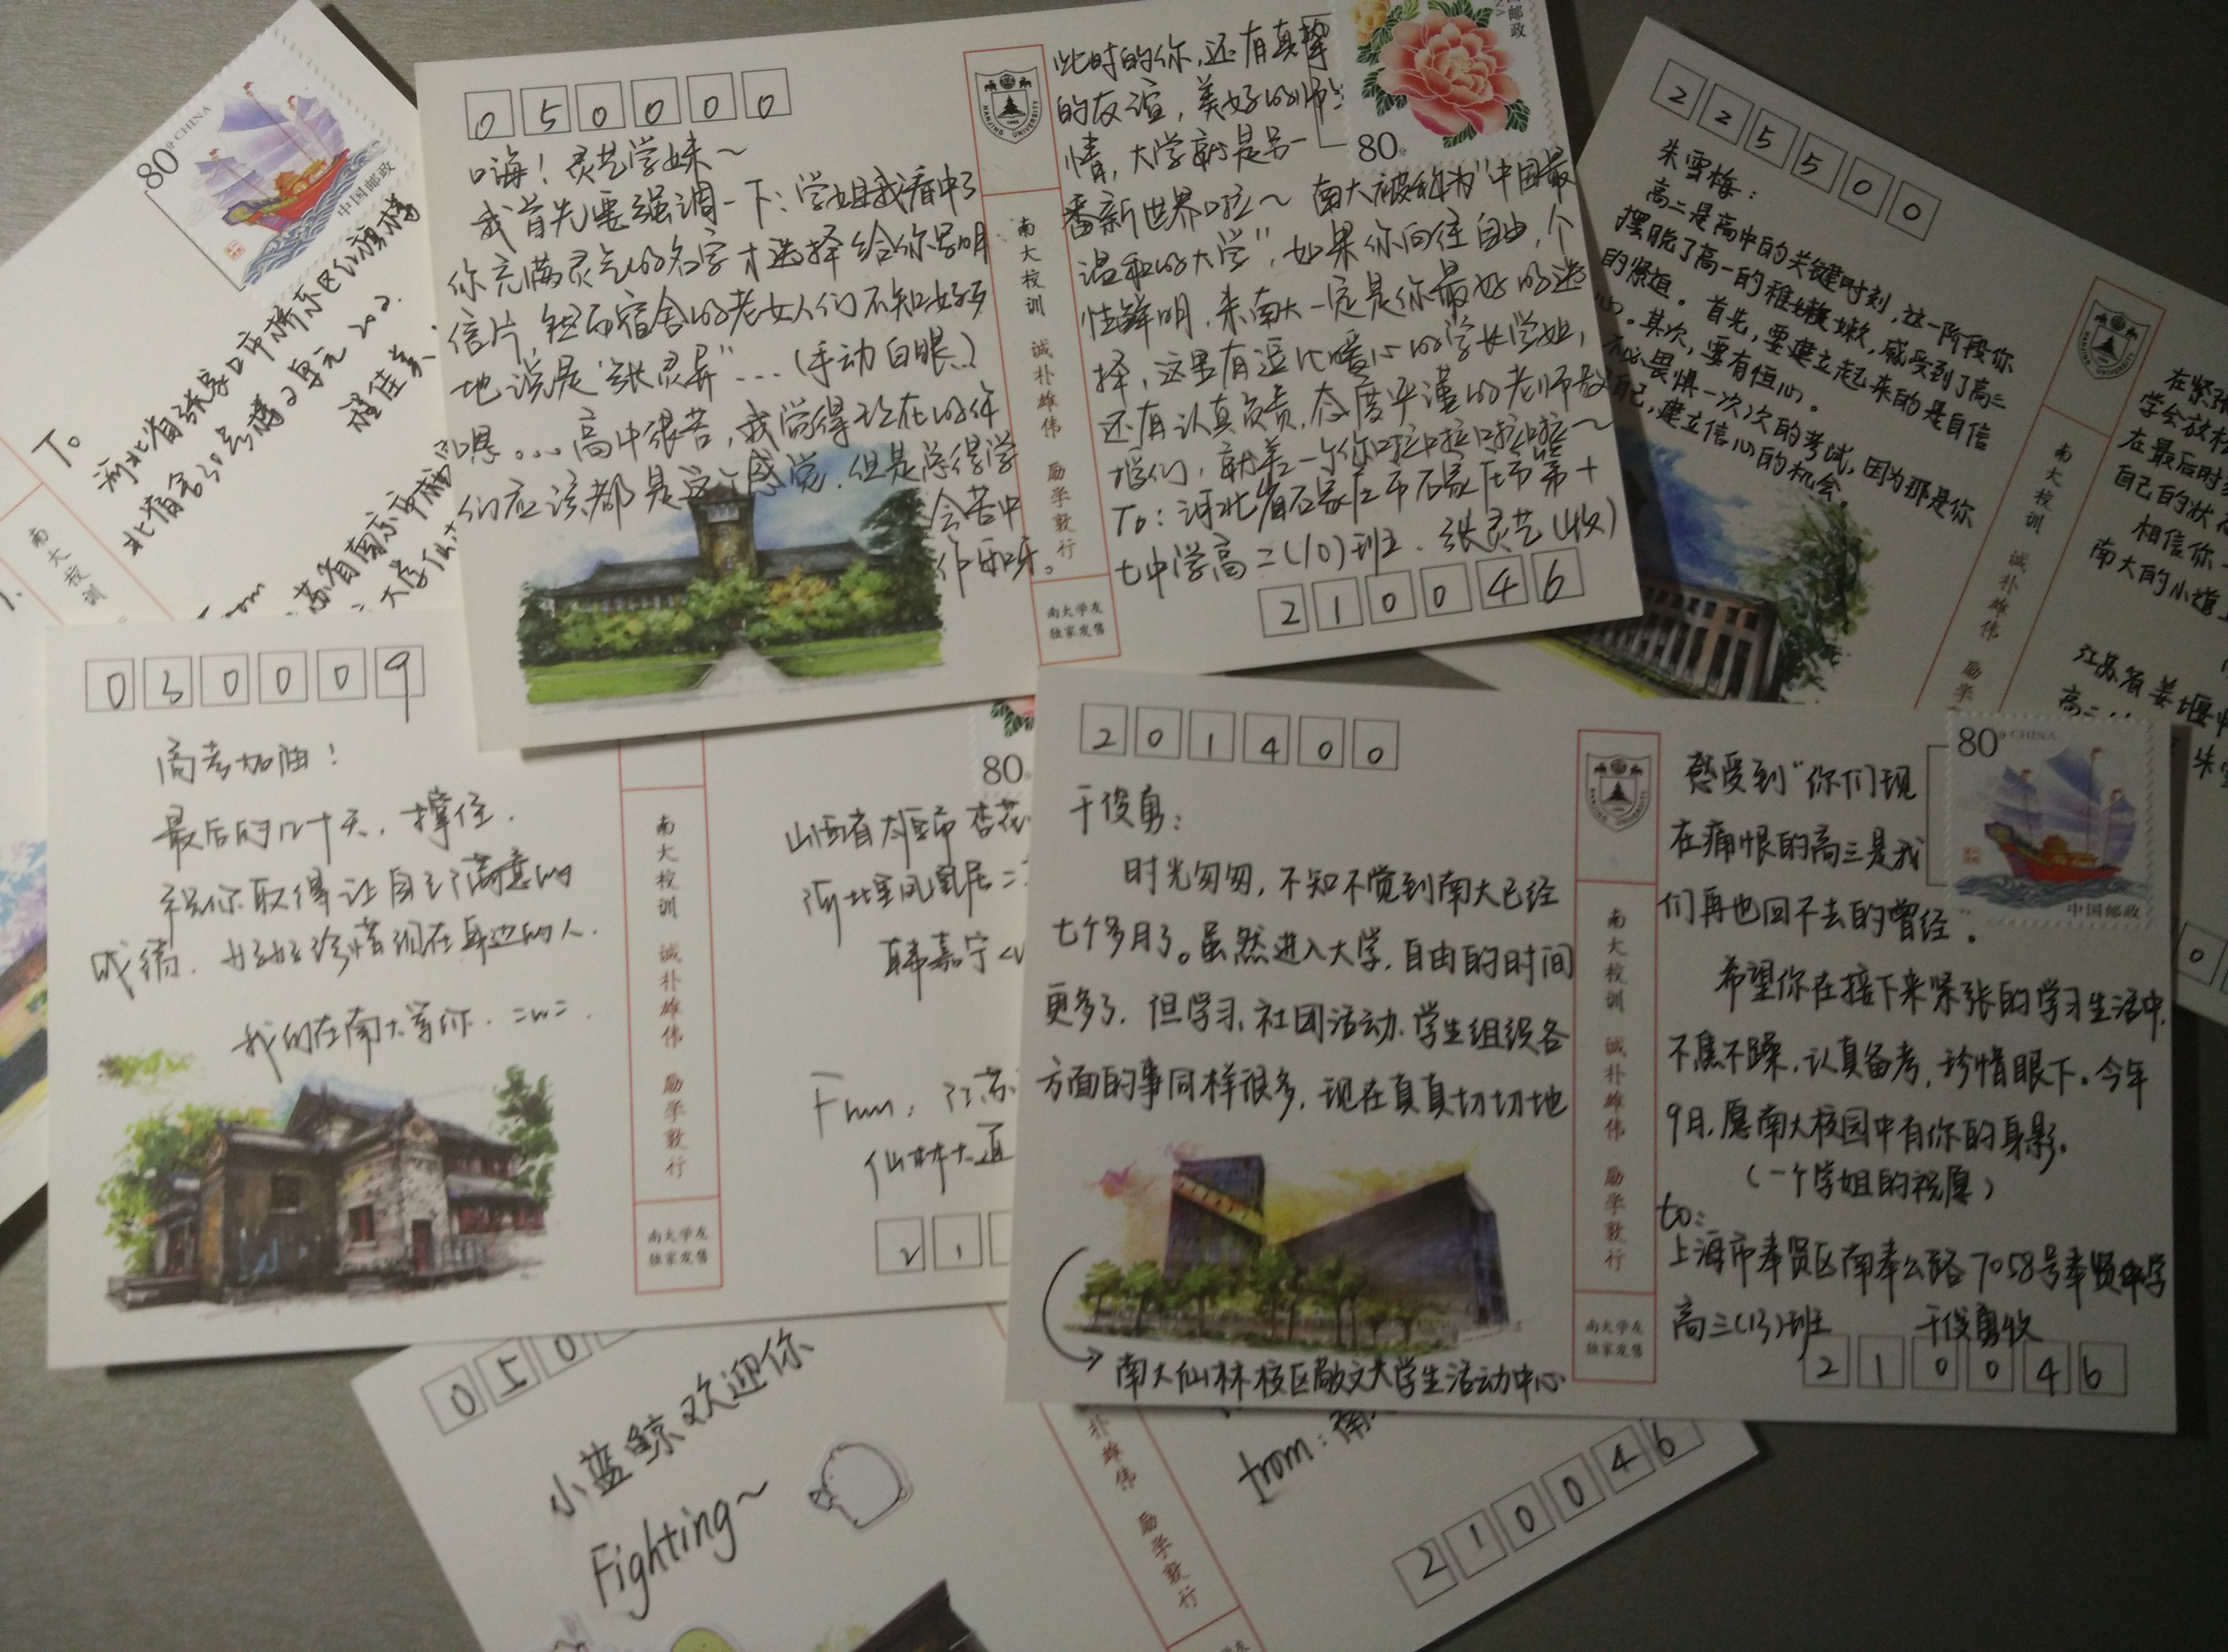 80分 CHINA
中国邮政
To
河北省张家口市桥东区红旗楼
北宿舍30号楼2单元202.
程佳美
From
江苏省南京市
大学仙林
南大校训
050000
嗨！灵艺学妹～
我首先要强调一下：学姐我看中了
你充满灵气的名字才选择给你写明
信片，但而宿舍的老女人们不知好歹
地说是“张灵异”…（手动白眼..）
嗯…. 高中很苦，我觉得现在的你
们应该都是这个感觉，但是学得学
会苦中
作乐呀。
NANJING UNIVERSITY
南大校训 诚朴雄伟 励学敦行
南大学友
独家发售
此时的你，还有真挚
的友谊，美好的师生
情，大学就是另一
番新世界啦～ 南大被称为“中国最
温和的大学”，如果你向往自由，个
性鲜明，来南大一定是你最好的选
择，这里有逗比暖心的学长学姐，
还有认真负责，态度严谨的老师教
授们，就差一个你啦啦啦啦～
To：河北省石家庄市石家庄市第十
七中学高二(10)班. 张灵艺(收)
邮政
80分
210046
225500
朱雪梅：
高二是高中的关键时刻，这一阶段你
摆脱了高一的稚嫩，感受到了高二
的紧迫。首先，要建立起来的是自信
心。其次，要有恒心。
不必畏惧一次次的考试，因为那是你
自己，建立信心的机会。
南大校训 诚朴雄伟 励学
在紧张
学会放松
在最后时刻
自己的状态
相信你一
南大的小道上
江苏省姜堰中
高二
朱雪
0
030009
高考加油！
最后的几十天，撑住.
祝你取得让自己满意的
成绩. 好好珍惜现在身边的人.
我们在南大等你. =w=.
南大校训 诚朴雄伟 励学敦行
南大学友
独家发售
80分
山西省太原市杏花
凤凰居二
韩嘉宁
From, 江苏
仙林大道
21
201400
干俊勇：
时光匆匆，不知不觉到南大已经
七个多月了。虽然进入大学，自由的时间
更多了，但学习、社团活动、学生组织各
方面的事同样很多，现在真真切切地
南大仙林校区敬文大学生活动中心
NANJING UNIVERSITY
南大校训 诚朴雄伟 励学敦行
南大学友
独家发售
感受到“你们现
在痛恨的高三是我
们再也回不去的曾经”。
希望你在接下来紧张的学习生活中，
不焦不躁，认真备考，珍惜眼下。今年
9月，愿南大校园中有你的身影。
（一个学姐的祝愿）
to：
上海市奉贤区南奉公路7058号奉贤中学
高三(13)班 干俊勇收
80分 CHINA
中国邮政
210046
050
小蓝鲸欢迎你
Fighting～
朴雄伟 励学敦行
南大学友
from：南
210046